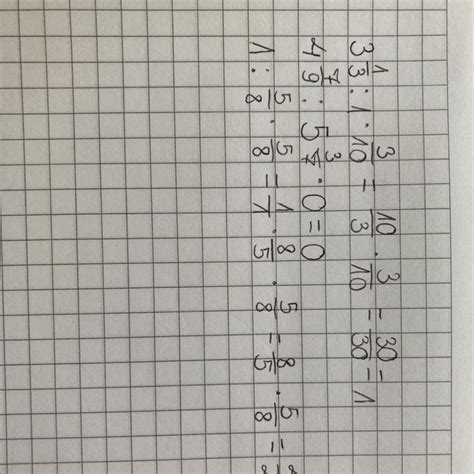 3 1/3 : 1 · 3/10 = 10/3 · 3/10 = 30/30 = 1
4 7/9 : 5 3/7 · 0 = 0
1 : 5/8 · 5/8 = 1/1 · 8/5 · 5/8 = 8/5 · 5/8 =